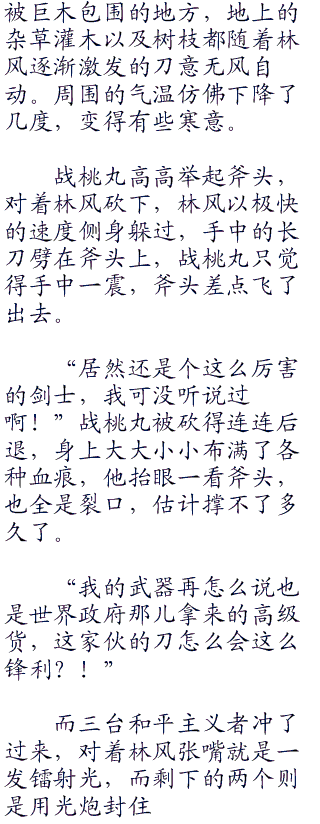 被巨木包围的地方，地上的
杂草灌木以及树枝都随着林
风逐渐激发的刀意无风自
动。周围的气温仿佛下降了
几度，变得有些寒意。
战桃丸高高举起斧头，
对着林风砍下，林风以极快
的速度侧身躲过，手中的长
刀劈在斧头上，战桃丸只觉
得手中一震，斧头差点飞了
出去。
“居然还是个这么厉害
的剑士，我可没听说过
啊！”战桃丸被砍得连连后
退，身上大大小小布满了各
种血痕，他抬眼一看斧头，
也全是裂口，估计撑不了多
久了。
“我的武器再怎么说也
是世界政府那儿拿来的高级
货，这家伙的刀怎么会这么
锋利？！”
而三台和平主义者冲了
过来，对着林风张嘴就是一
发镭射光，而剩下的两个则
是用光炮封住